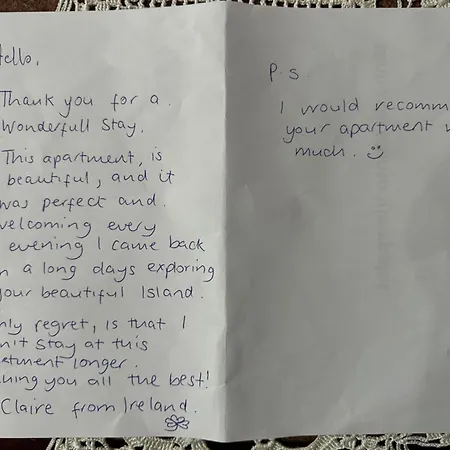 Hello,
Thank you for a.
Wonderfull Stay.
This apartment, is
beautiful, and it
was perfect and.
welcoming every
evening I came back
a long days exploring
your beautiful Island.
only regret, is that I
Stay at this
longer.
you all the best!
Claire from Ireland.
P.S.
I would recomm
your apartment
much. ☺